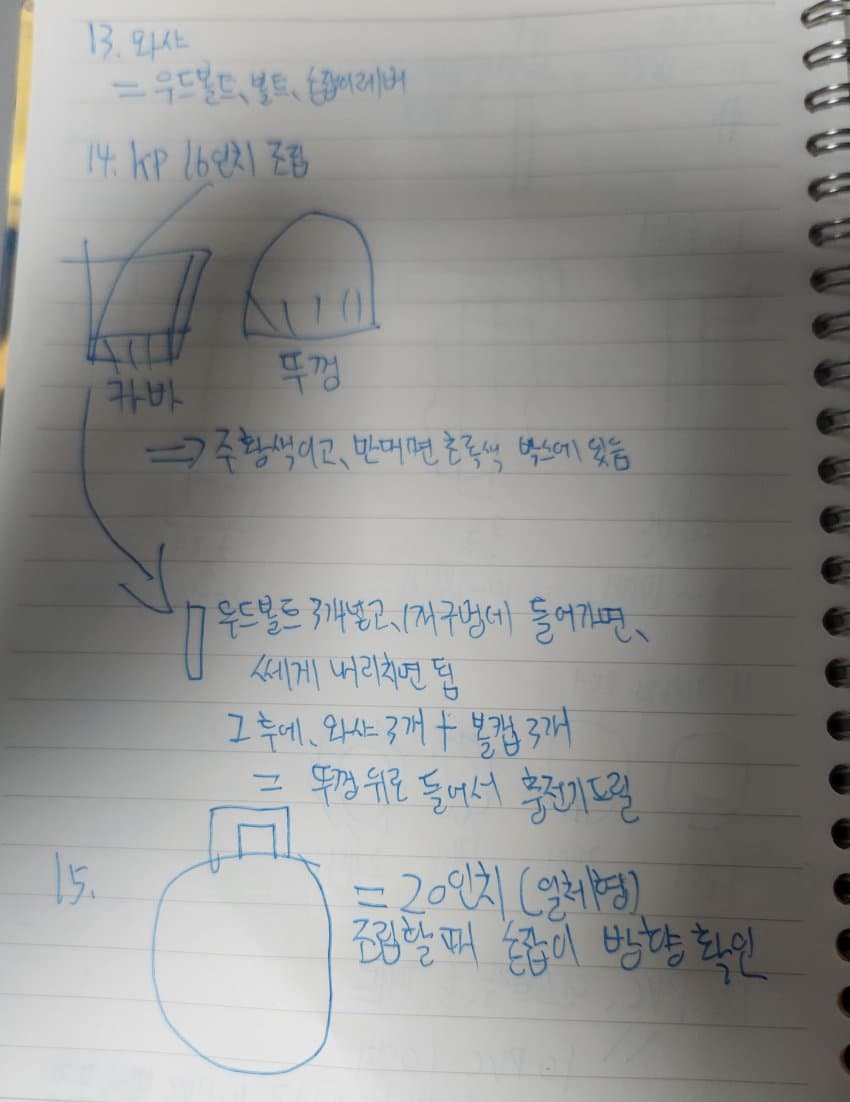 13. 와샤
= 우드볼트、볼트、손잡이레버
14. KP 16인치 조립
카바
뚜껑
⇒ 주황색이고、반대면 초록색 박스에 있음
우드볼트 3개넣고、1자구멍에 들어가면、
쎄게 내리치면 됨
그 후에、와샤 3개 + 볼캡 3개
= 뚜껑 뒤로 들어서 충전기드릴
15.
= 20인치 (일체형)
조립할 때 손잡이 방향 확인